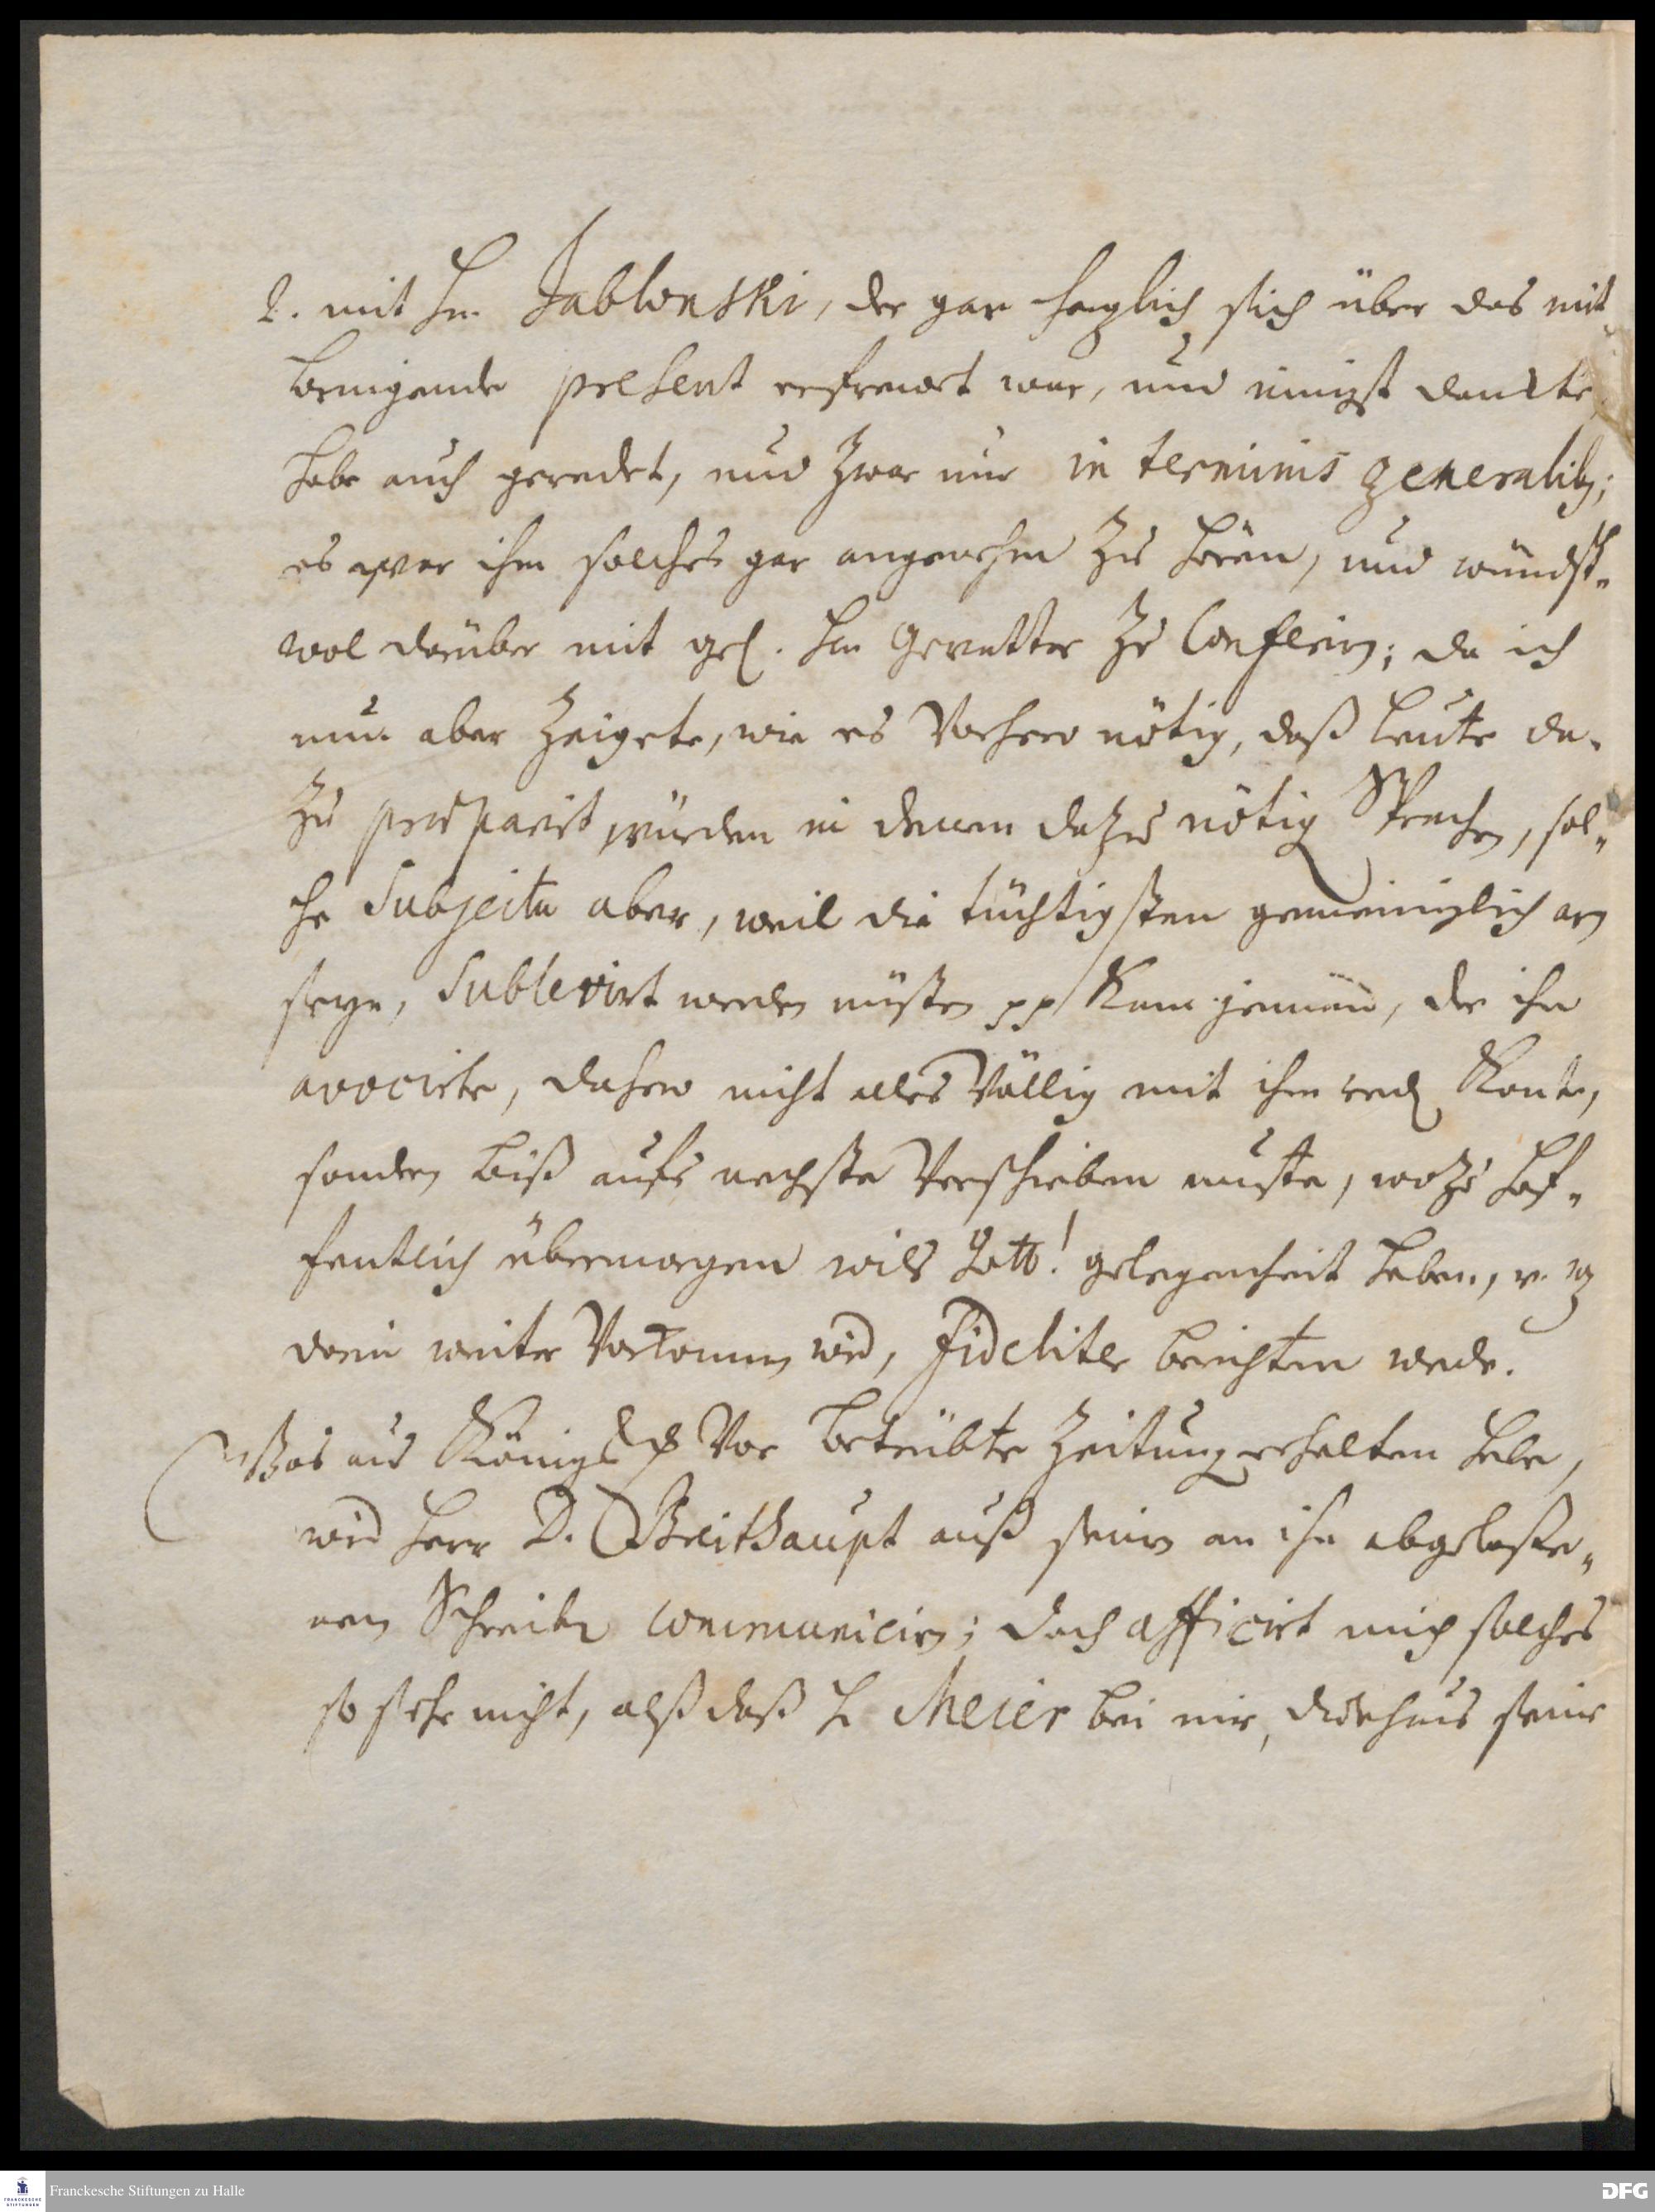 2. mit Hn. Jablonski, der gar hertzlich sich über das mit
kommende present erfreuet war, und innigst danckte
habe auch geredet, und zwar nur in terminis generalib9;
es war ihm solches gar angenehm zu hören, und wündscht
wol darüber mit gel. Hn Gevatter zu Conferirn; da ich
nun aber zeigete, wie es vorhero nötig, daß Leute da-
zu praeparirt würden in denen dazu nötig Sprachen, sol-
che Subjecta aber, weil die tüchtigsten gemeiniglich arm
seyn, Sublevirt werden müsten pp Kam jemand, der ihn
avocirte, dahero nicht alles völlig mit ihm reden Konte,
sondern biß aufs nechste verschieben muste, wozu hof-
fentlich übermorgen wils Gott! gelegenheit haben, v. wz
darin weiter vorkommen wird, fideliter berichten werde.
Was aus Königsb. vor betrübte Zeitung erhalten habe,
wird Herr D. Breithaupt auß seinem an ihn abgelaße-
nen Schreiben communicirn; doch afficirt mich solches
so sehr nicht, alß daß H. Meier bei mir, durchaus seine
Franckesche Stiftungen zu Halle
FRANCKESCHE STIFTUNGEN
DFG